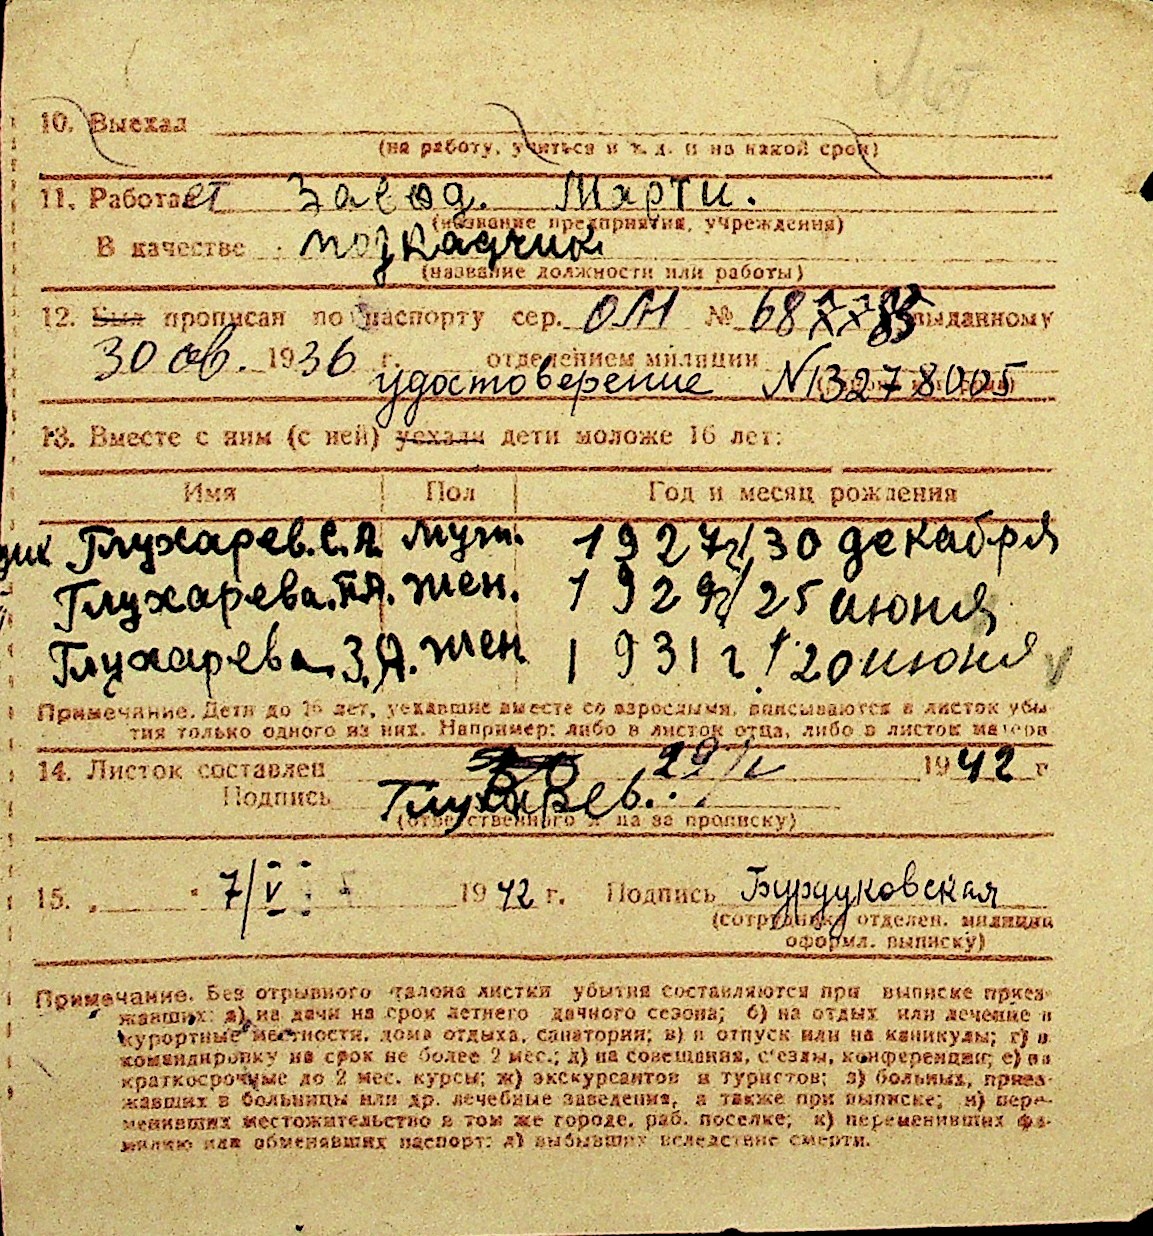 10. Выехал
(на работу, учиться и т. д. и на какой срок)
11. Работает Завод. Марти.
(название предприятия, учреждения)
В качестве
(название должности или работы)
12. Был прописан по паспорту сер. ОЛ № 68 выданному
30 ав. 1936 г. отделением милиции
удостоверение №3278005
13. Вместе с ним (с ней) уехали дети моложе 16 лет:
Имя Пол Год и месяц рождения
Глухарев.С.А муж. 1927г/30 декабря
Глухарева.П.А. жен. 1929г/25 июня
Глухарева.З.А. жен. 1931г/20 июня
Примечание. Дети до 16 лет, уехавшие вместе со взрослыми, вписываются в листок убы-
тия только одного из них. Например: либо в листок отца, либо в листок матери
14. Листок составлен 1942 г
Подпись Глухарев.
(ответственного лица за прописку)
15. 7/V 1942 г. Подпись Бурдуковская
(сотрудника отделен. милиции
оформл. выписку)
Примечание. Без отрывного талона листки убытия составляются при выписке приез-
жавших: а) на дачи на срок летнего дачного сезона; б) на отдых или лечение в
курортные местности, дома отдыха, санатории; в) в отпуск или на каникулы; г) в
командировку на срок не более 2 мес.; д) на совещания, с'езды, конференции; е) на
краткосрочные до 2 мес. курсы; ж) экскурсантов и туристов; з) больных, приез-
жавших в больницы или др. лечебные заведения, а также при выписке; и) пере-
менивших местожительство в том же городе, раб. поселке; к) переменивших фа-
милию или обменявших паспорт; л) выбывших вследствие смерти.